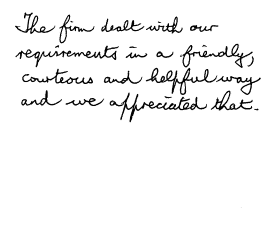 The firm dealt with our
requirements in a friendly,
courteous and helpful way
and we appreciated that.